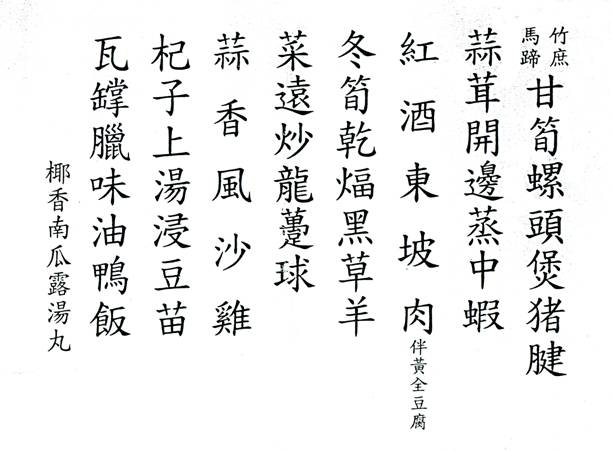 竹庶馬蹄甘筍螺頭煲猪腱
蒜茸開邊蒸中蝦
紅酒東坡肉伴黃全豆腐
冬筍乾煏黑草羊
菜遠炒龍躉球
蒜香風沙雞
杞子上湯浸豆苗
瓦罉臘味油鴨飯
椰香南瓜露湯丸